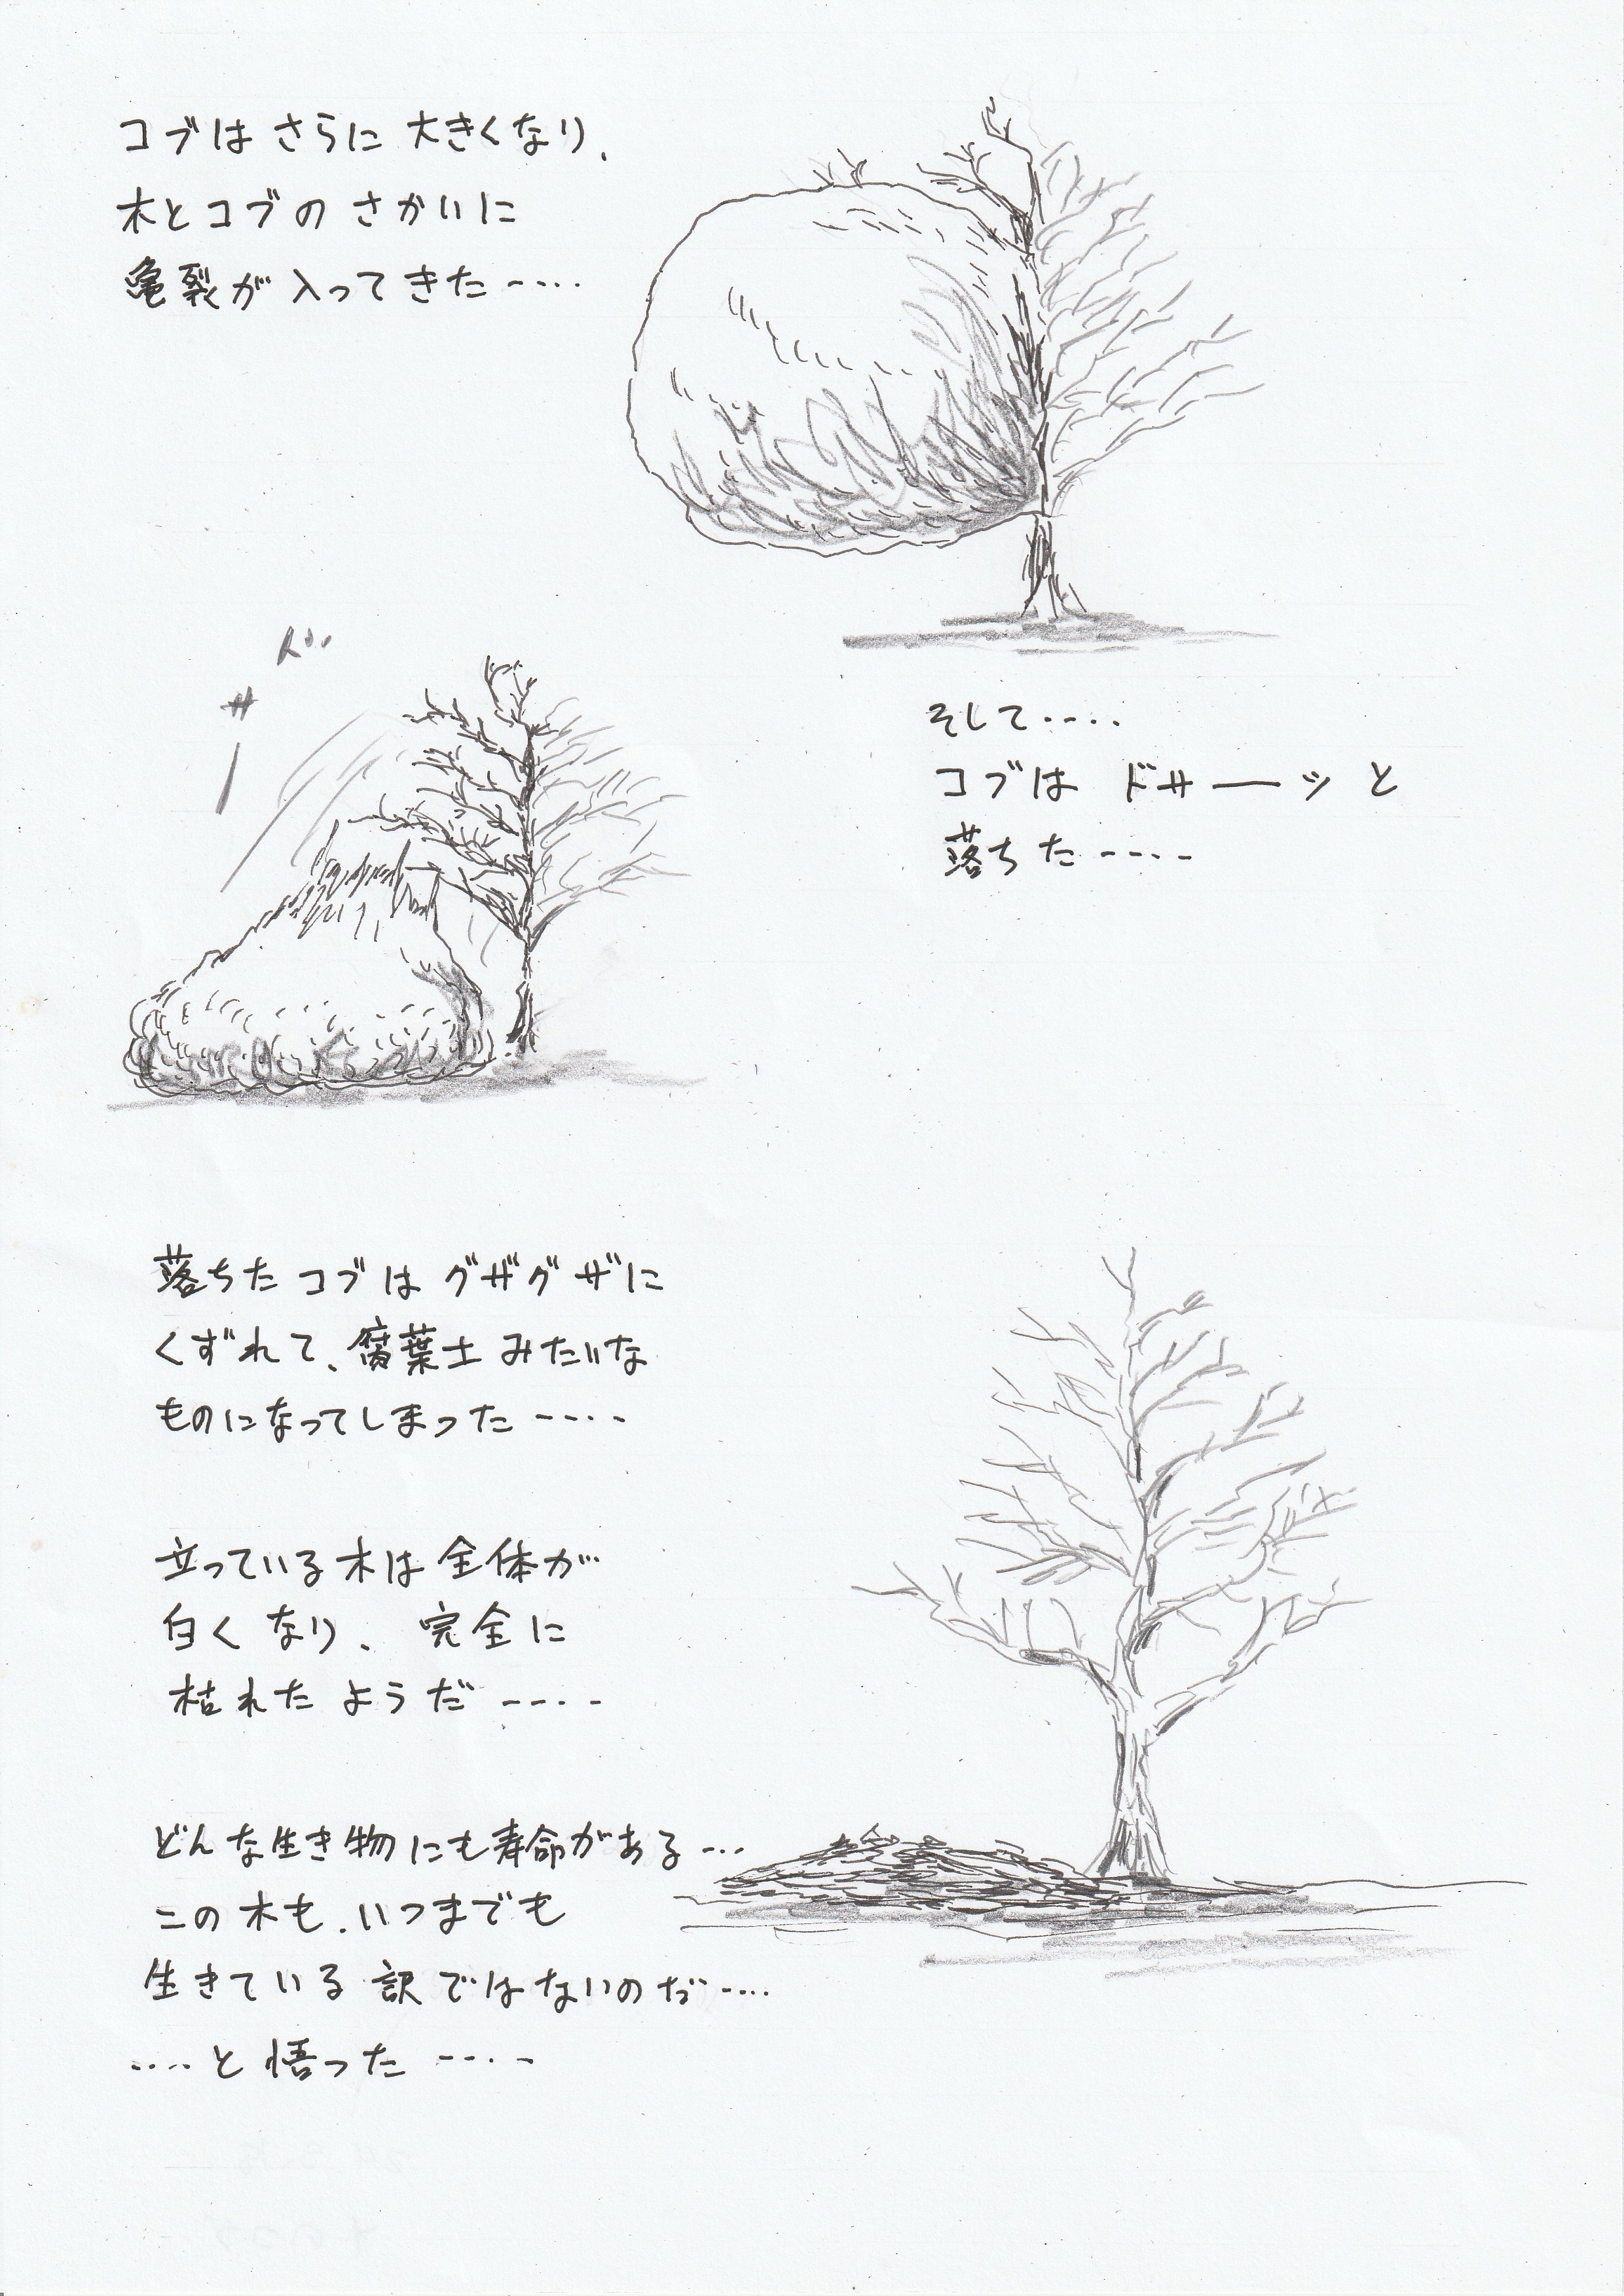 コブは さらに 大きくなり、
木とコブの さかいに
亀裂が 入ってきた ‥‥
ドサー
そして‥‥
コブは ドサーーッ と
落ちた‥‥
落ちた コブは グザグザに
くずれて、腐葉土 みたいな
ものになってしまった‥‥
立っている 木は 全体が
白く なり、完全に
枯れた ようだ‥‥
どんな生き物にも寿命がある…
この 木も、いつまでも
生きている 訳ではないのだ‥‥
‥‥と 悟った ‥‥